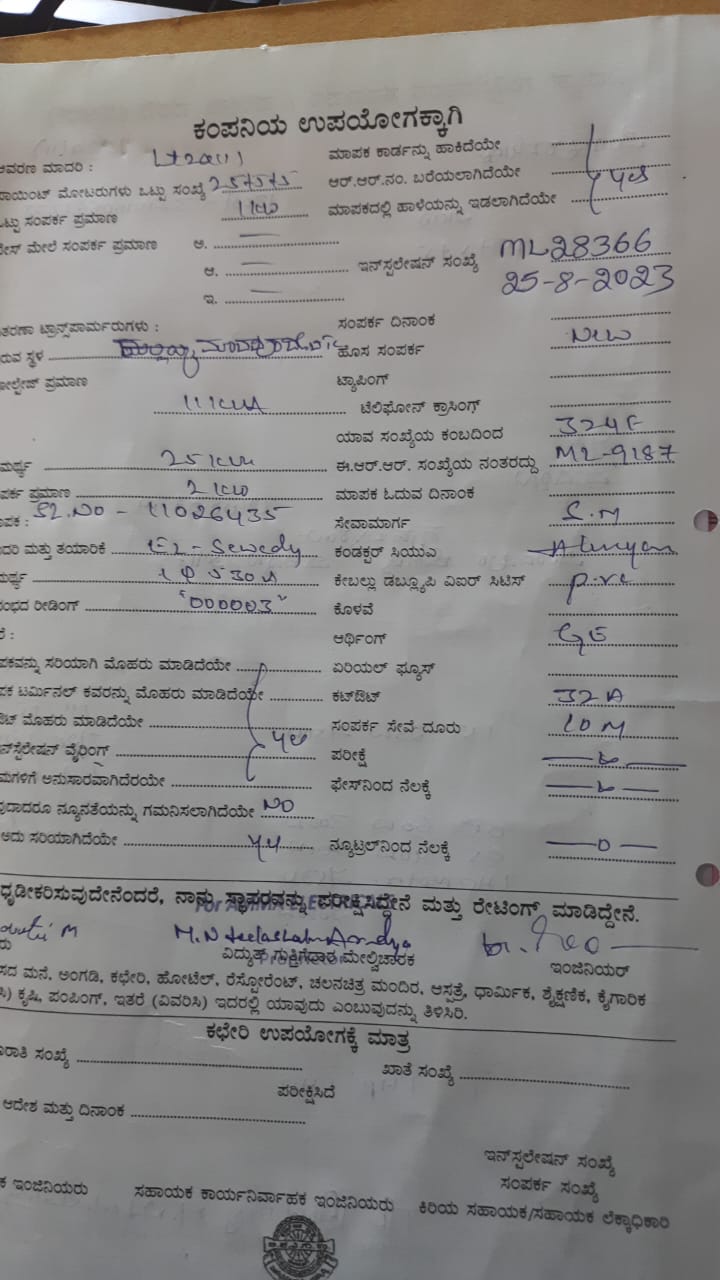 ಕಂಪನಿಯ ಉಪಯೋಗಕ್ಕಾಗಿ
ಆವರಣ ಮಾದರಿ : ಮಾಪಕ ಕಾರ್ಡನ್ನು ಹಾಕಿದೆಯೇ
ರಾಯಿಂಟ್ ಮೋಟರುಗಳು ಒಟ್ಟು ಸಂಖ್ಯೆ ಆರ್.ಆರ್.ನಂ. ಬರೆಯಲಾಗಿದೆಯೇ
ಒಟ್ಟು ಸಂಪರ್ಕ ಪ್ರಮಾಣ 1KW ಮಾಪಕದಲ್ಲಿ ಹಾಳೆಯನ್ನು ಇಡಲಾಗಿದೆಯೇ yes
ಮೇಲೆ ಸಂಪರ್ಕ ಪ್ರಮಾಣ ಅ.
ಆ. ಇನ್‌ಸ್ಪಲೇಷನ್ ಸಂಖ್ಯೆ ML28366
25-8-2023
ಇ.
ಟ್ರಾನ್ಸ್‌ಪಾರ್ಮರುಗಳು : ಸಂಪರ್ಕ ದಿನಾಂಕ
ರುವ ಸ್ಥಳ ಹೊಸ ಸಂಪರ್ಕ New
ಪ್ರಮಾಣ ಟ್ಯಾಪಿಂಗ್
ಟೆಲಿಫೋನ್ ಕ್ರಾಸಿಂಗ್
ಯಾವ ಸಂಖ್ಯೆಯ ಕಂಬದಿಂದ
ಮರ್ಥ್ಯ ಈ.ಆರ್.ಆರ್. ಸಂಖ್ಯೆಯ ನಂತರದ್ದು ML-9187
ಪರ್ಕ ಪ್ರಮಾಣ 2 KW ಮಾಪಕ ಓದುವ ದಿನಾಂಕ
ಪಕ : Sl.No - 11026435 ಸೇವಾಮಾರ್ಗ S.M
ದರಿ ಮತ್ತು ತಯಾರಿಕೆ El-Sewedy ಕಂಡಕ್ಟರ್ ಸಿಯುಎ
ಮರ್ಥ್ಯ ಕೇಬಲ್ಲು ಡಬ್ಲ್ಯೂಪಿ ವಿಐರ್ ಸಿಟಿಸ್ p.vc
ರಂಭದ ರೀಡಿಂಗ್ "000003" ಕೊಳವೆ
ರೆ : ಆರ್ಥಿಂಗ್
ಪಕವನ್ನು ಸರಿಯಾಗಿ ಮೊಹರು ಮಾಡಿದೆಯೇ ಏರಿಯಲ್ ಫ್ಯೂಸ್
ಪಕ ಟರ್ಮಿನಲ್ ಕವರನ್ನು ಮೊಹರು ಮಾಡಿದೆಯೇ ಕಟ್‌ಔಟ್ 32A
ಔಟ್ ಮೊಹರು ಮಾಡಿದೆಯೇ ಸಂಪರ್ಕ ಸೇವೆ ದೂರು 10 M
ನ್‌ಸ್ಟಲೇಷನ್ ವೈರಿಂಗ್ yes ಪರೀಕ್ಷೆ
ಮಗಳಿಗೆ ಅನುಸಾರವಾಗಿದೆರಯೇ ಫೇಸ್‌ನಿಂದ ನೆಲಕ್ಕೆ
ವುದಾದರೂ ನ್ಯೂನತೆಯನ್ನು ಗಮನಿಸಲಾಗಿದೆಯೇ NO
ಅದು ಸರಿಯಾಗಿದೆಯೇ ನ್ಯೂಟ್ರಲ್‌ನಿಂದ ನೆಲಕ್ಕೆ
ಧೃಡೀಕರಿಸುವುದೇನೆಂದರೆ, ನಾನು ಸ್ಥಾಪರವನ್ನು ಪರೀಕ್ಷಿಸಿದ್ದೇನೆ ಮತ್ತು ರೇಟಿಂಗ್ ಮಾಡಿದ್ದೇನೆ.
ವಿದ್ಯುತ್ ಗುತ್ತಿಗೆದಾರ ಮೇಲ್ವಿಚಾರಕ ಇಂಜಿನಿಯರ್
ಸದ ಮನೆ. ಅಂಗಡಿ, ಕಛೇರಿ, ಹೋಟೆಲ್, ರೆಸ್ಟೋರೆಂಟ್, ಚಲನಚಿತ್ರ ಮಂದಿರ, ಆಸ್ಪತ್ರೆ, ಧಾರ್ಮಿಕ, ಶೈಕ್ಷಣಿಕ, ಕೈಗಾರಿಕ
ಸಿ) ಕೃಷಿ, ಪಂಪಿಂಗ್, ಇತರೆ (ವಿವರಿಸಿ) ಇದರಲ್ಲಿ ಯಾವುದು ಎಂಬುವುದನ್ನು ತಿಳಿಸಿರಿ.
ಕಛೇರಿ ಉಪಯೋಗಕ್ಕೆ ಮಾತ್ರ
ರಾತಿ ಸಂಖ್ಯೆ ಖಾತೆ ಸಂಖ್ಯೆ
ಪರೀಕ್ಷಿಸಿದೆ
ಆದೇಶ ಮತ್ತು ದಿನಾಂಕ
ಇನ್‌ಸ್ಪಲೇಷನ್ ಸಂಖ್ಯೆ
ಸಂಪರ್ಕ ಸಂಖ್ಯೆ
ಕ ಇಂಜಿನಿಯರು ಸಹಾಯಕ ಕಾರ್ಯನಿರ್ವಾಹಕ ಇಂಜಿನಿಯರು ಕಿರಿಯ ಸಹಾಯಕ/ಸಹಾಯಕ ಲೆಕ್ಕಾಧಿಕಾರಿ